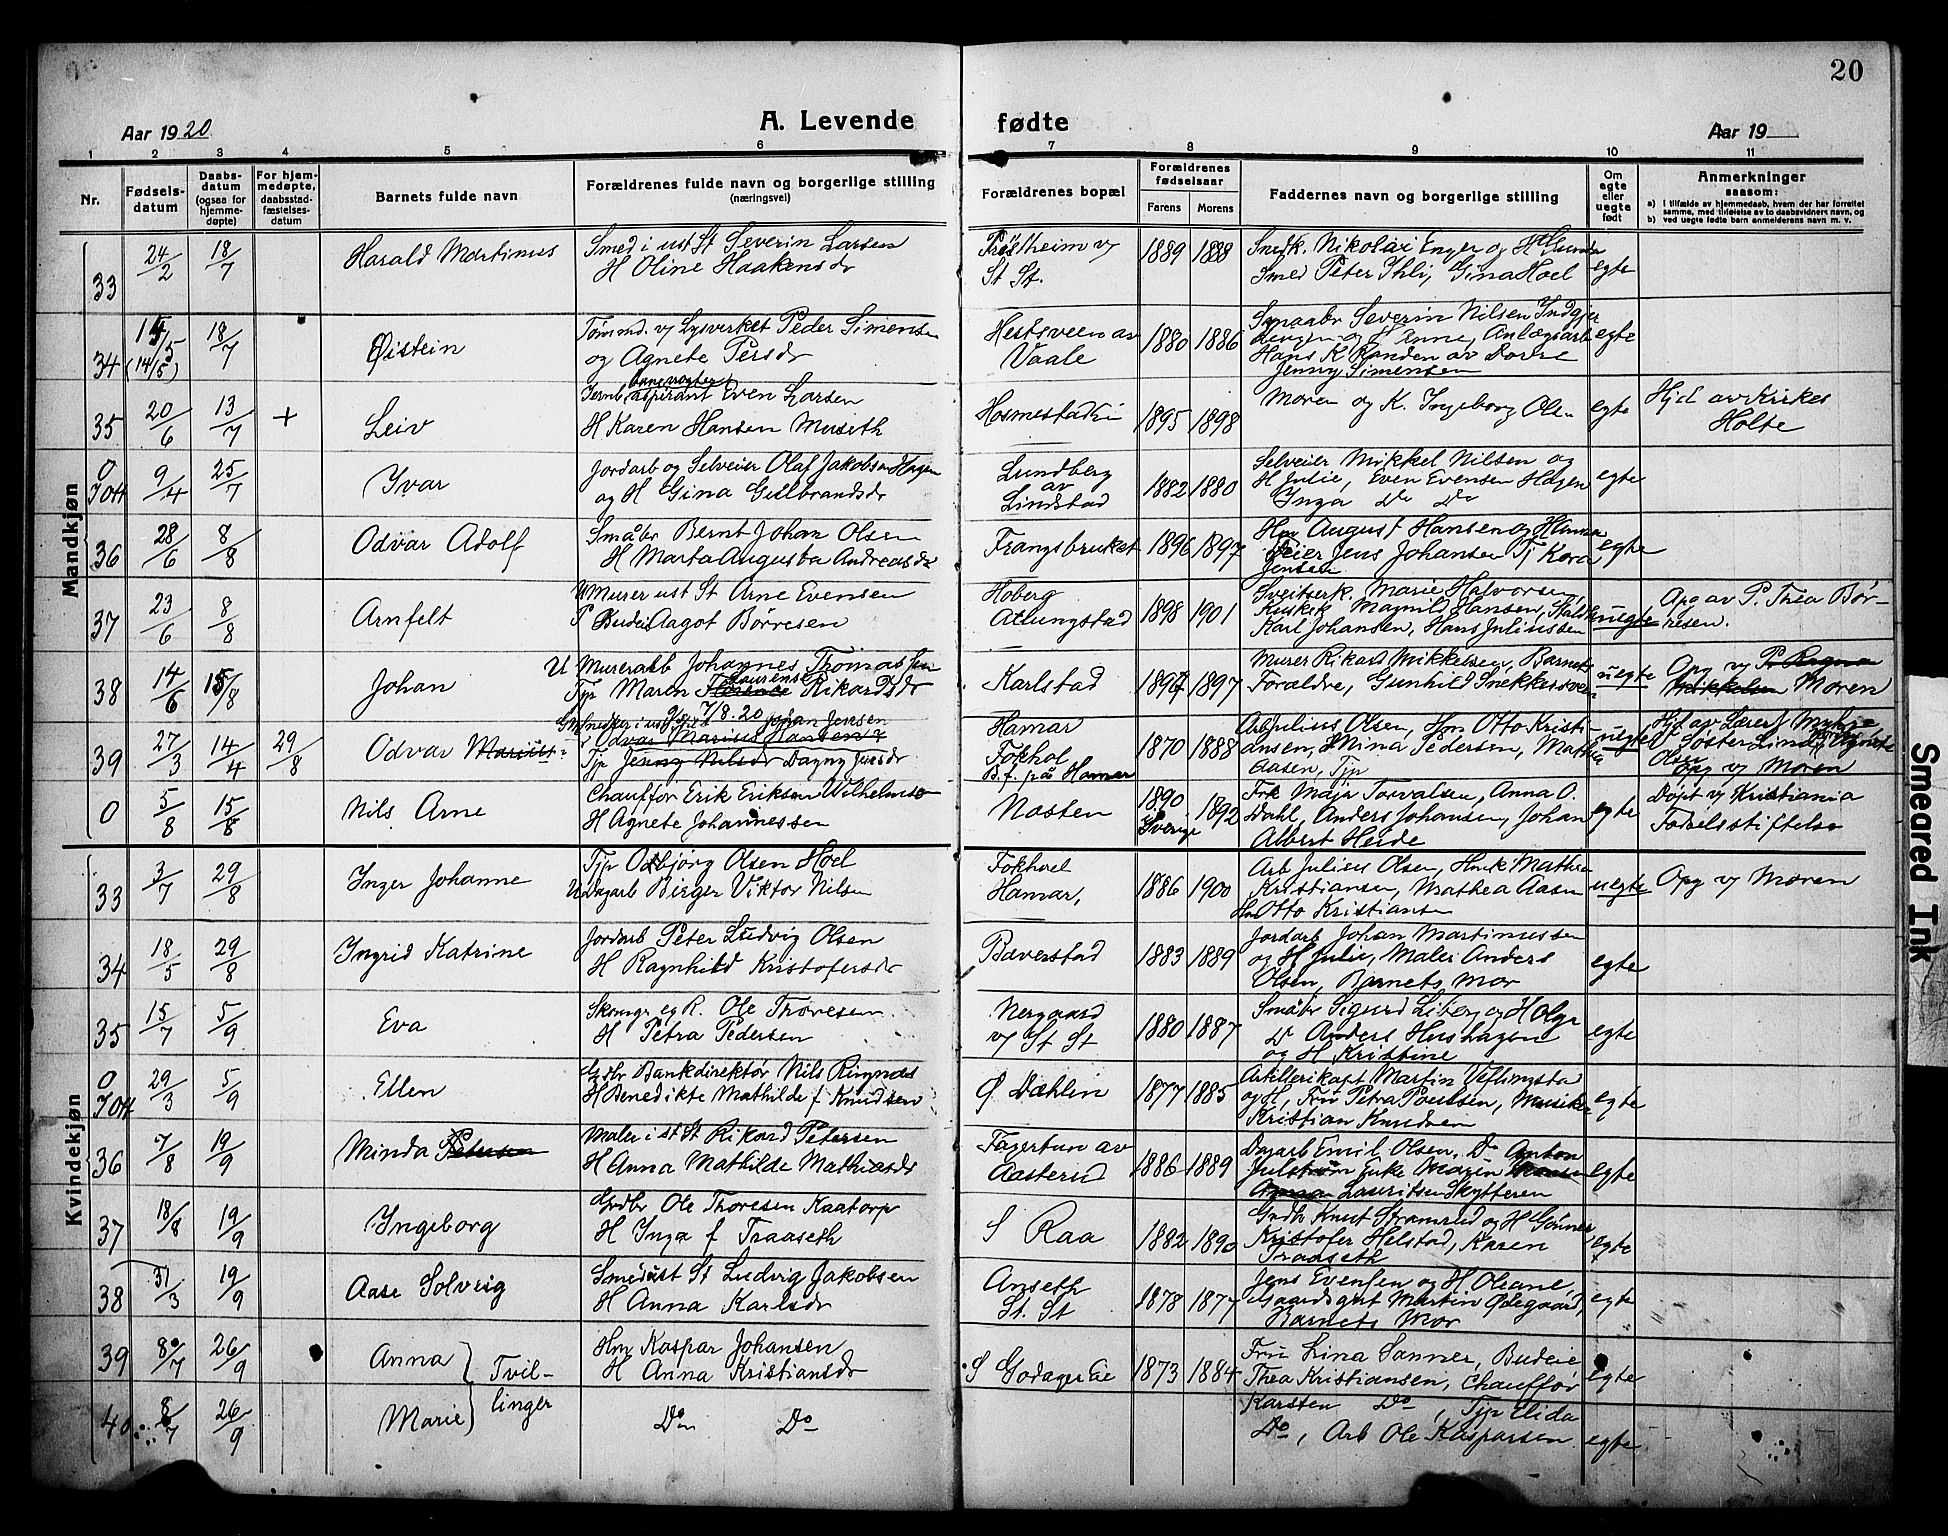 20
Aar 1920
A. Levende fødte
Aar 19
1 2 3 4 5 6 7 8 9 10 11
Nr.
Fødsels-
datum
Daabs-
datum
(ogsaa for
hjemme-
døpte)
For hjem-
medøpte,
daabsstad-
fæstelses-
datum
Barnets fulde navn
Forældrenes fulde navn og borgerlige stilling
(næringsvei)
Forældrenes bopæl
Forældrenes
fødselsaar
Farens Morens
Faddernes navn og borgerlige stilling
Om
egte
eller
uegte
født
Anmerkninger
saasom:
a) I tilfælde av hjemmedaab, hvem der har forrettet
samme, med tilføielse av to daabsvidners navn, og
b) ved uegte fødte barn anmelderens navn m. v.
Mandkjøn
33 24/2 18/7 Harald Martinus
Smed i ust St Severin Larsen
H Oline Haakensdr
St St.
1889 1888
Smedk. Nikolai Enger og
Smed Peter Ihli, Gina Hoel
egte
34 15/5 (14/5) 18/7 Øistein
Tømmd. v/ Lysverket Peder Simensen
og Agnete Persdr
Hestsveen av
Vaale
1880 1886
Severin Nilsen
og H Anne, Anlægsarb
Hans K Randen av
Jenny Simensen
egte
35 20/6 13/7 + Leiv
Jernb. banevogter aspirant Even Larsen
H Karen Hansen Museth
1895 1898
Moren og K. Ingeborg Olsen
egte
Hjd av Kirkes
Holte
0 9/4 25/7 Ivar
Jordarb og Selveier Olaf Jakobsen Hagen
og H Gina Gulbrandsdr
Lundberg
av
Lindstad
1882 1880
Selveier Mikkel Nilsen og
H Julie, Even Evensen Hagen
Inga Do Do
egte
36 28/6 8/8 Odvar Adolf
Småbr Bernt Johan Olsen
H Marta Augusta Andreasdr
Frangsbruket
1896 1897
Hm August Hansen og H Anna
Eier Jens Johansen Tj Kora
Jensen
egte
37 23/6 8/8 Arnfelt
U Murer ust St Arne Evensen
P Budeie Aagot Børresen
Hoberg
Atlungstad
1898 1901
Sveitserk. Marie Halvorsen,
Kuskek Magnild Hansen,
Karl Johansen, Hans Juliussen
uegte
Opg av P. Thea Bør-
resen.
38 14/6 15/8 Johan
U Murerarb Johannes Thomassen
Tjp Maren Laurense Rikardsdr
Karlstad
1897 1897
Murer Rikard Mikkelsen, Barnets
Foraldre, Gunhild Snekkersveen
uegte
Opg v/ P. Ragna
Mikkelsen Moren
39 27/3 14/4 29/8 Odvar Marius
7/8.20 Johan Jensen
Odvar Marius Hansen
Tjp Jenny Nilsdr Dagny Jensdr
Hamar
Fokhol
B.f. på Hamar
1870 1888
Arb Julius Olsen, Hm Otto Kristi-
ansen, H Mina Pedersen, Mathea
Aasen, Tjp
uegte
Hjd av
Søster
Olsen
Opg v/ Moren
0 5/8 15/8 Nils Arne
Chauffør Erik Eriksen Wilhelmsen
H Agnete Johannessen
Nosten
1890 Sverige 1892
Frk Maja Torvalsen, Anna O.
Dahl, Anders Johansen, Johan
Albert Heide
egte
Døpt v/ Kristiania
Fødselsstiftelse
Kvindekjøn
33 3/7 29/8 Inger Johanne
Tjp Osbjørg Olsen Hoel
U Dagarb Birger Viktor Nilsen
Fokhoel
Hamar,
1886 1900
Arb Julius Olsen, Mathea
Kristiansen, Mathea Aasen
Hm Otto Kristiansen
uegte
Opg v/ Moren
34 18/5 29/8 Ingrid Katrine
Jordarb Peter Ludvig Olsen
H Ragnhild Kristofersdr
Bæverstad
1883 1889
Jordarb Johan Martinussen
og H Julie, Maler Anders
Olsen, Barnets Mor
egte
35 15/7 5/9 Eva
Skomgr eg R. Ole Thoresen
H Petra Pedersen
Nergaard
v/ St St
1880 1887
Småbr Sigurd Liberg og H Olga
Do Anders Hushagen
og H Kristine
egte
0 29/3 5/9 Ellen
Grdbr Bankdirektør Nils Ringnes
H Benedikte Mathilde f. Knudsen
Ø Dæhlin
1877 1885
Artillerikapt Martin Veflingstad
og H, Fru Petra Poulsen, Musiker
Kristian Knudsen
egte
36 7/8 19/9 Minda Petersen
Maler i st St Rikard Petersen
H Anna Mathilde Mathiasdr
Fagertun av
Aasterud
1886 1889
Dagarb Emil Olsen, Do Anton
Julstrøm Enke Maren
Lauritsen Skytteren
egte
37 18/8 19/9 Ingeborg
Grdbr Ole Thoresen Kaatorp
H Inga f Traaseth
S Raa
1882 1890
Grdbr Knut og H Gunner,
Kristofer Helstad, Karen
Traaseth
egte
38 31/3 19/9 Aase Solveig
Smed ust St Ludvig Jakobsen
H Anna Karlsdr
Anseth
St. St
1878 1877
Jens Evensen og H Oleane,
Gaardsgut Martin Ødegaard,
Barnets Mor
egte
39 8/7 26/9 Anna
Tvil-
linger
Hm Kaspar Johansen
H Anna Kristiansdr
S Godager Eie
1873 1884
Fru Lina Sanner, Budeie
Thea Kristiansen, Chauffør
egte
40 8/7 26/9 Marie
Do Do
Karsten Do, Tjp Elida
Do, Arb Ole Kasparsen
egte
Smeared Ink